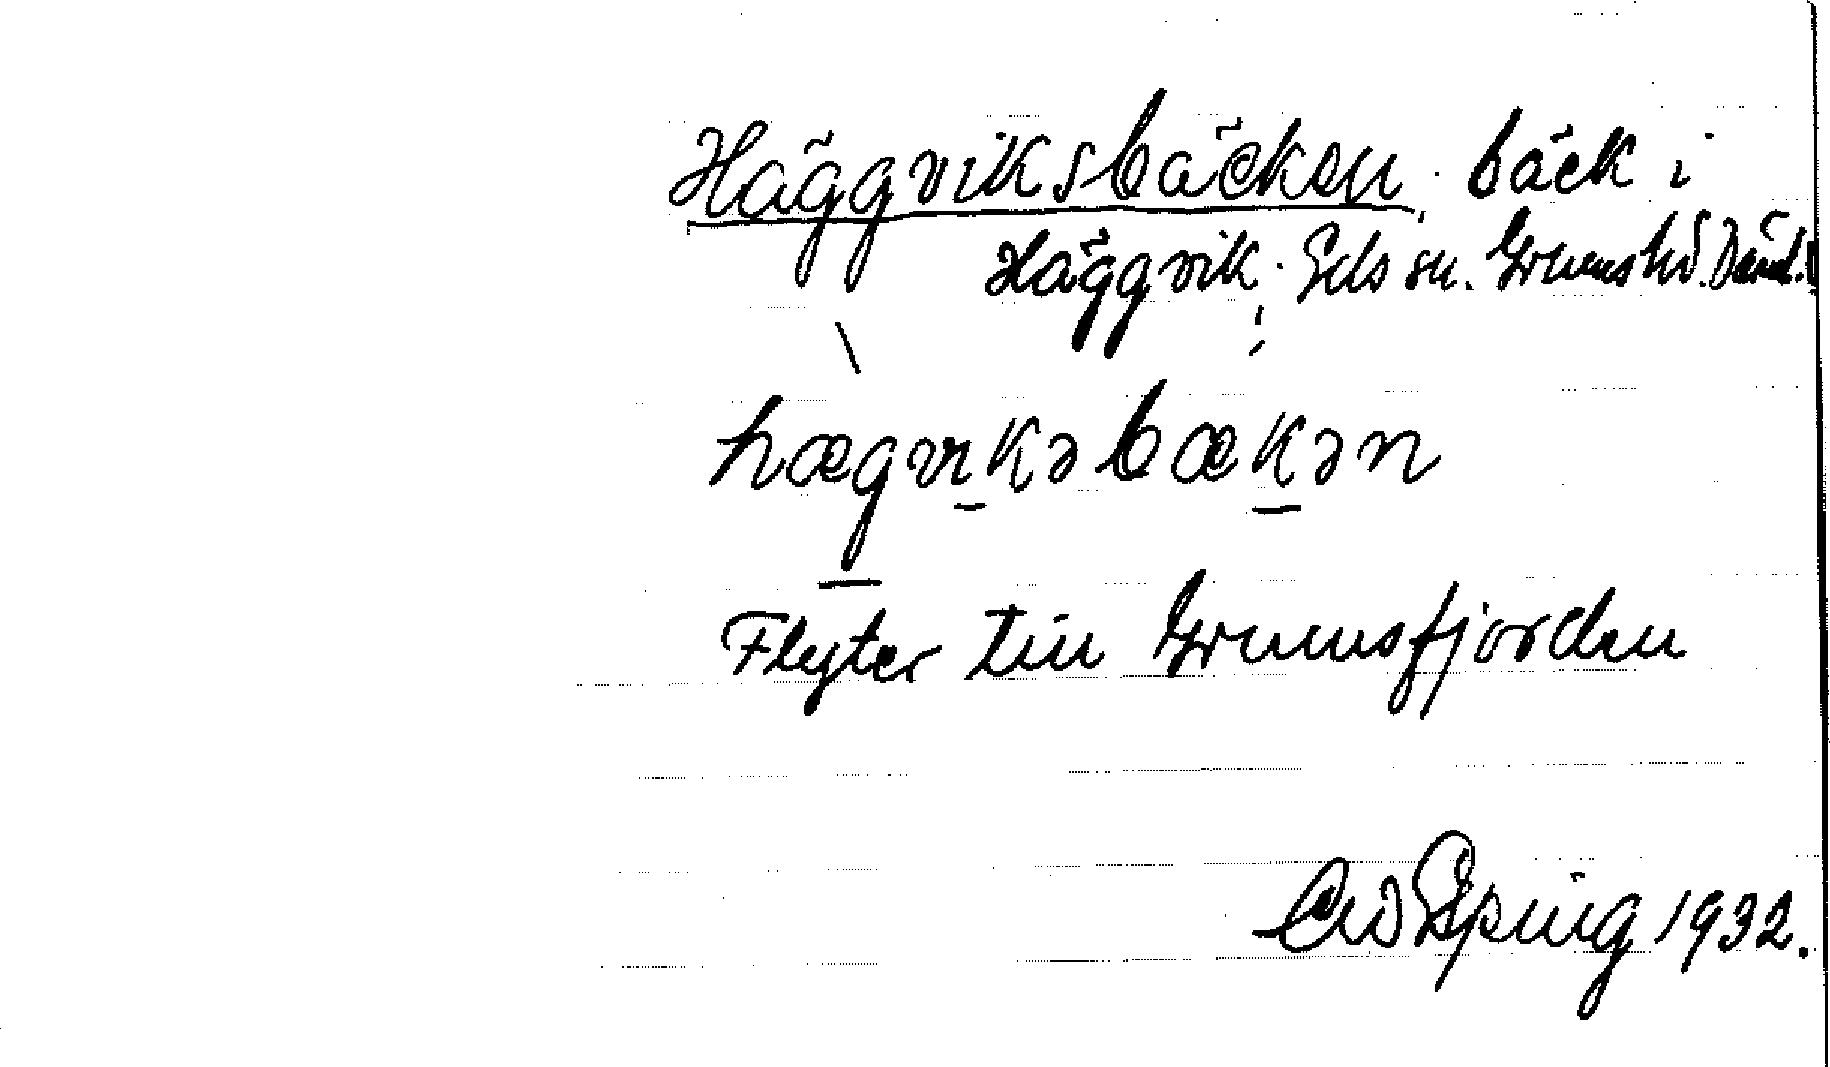 Häggviksbäcken, bäck i
Häggvik, Eds sn. Grums hd. Värml.
hægvikəbækən
Flyter till Grumsfjorden
1932.